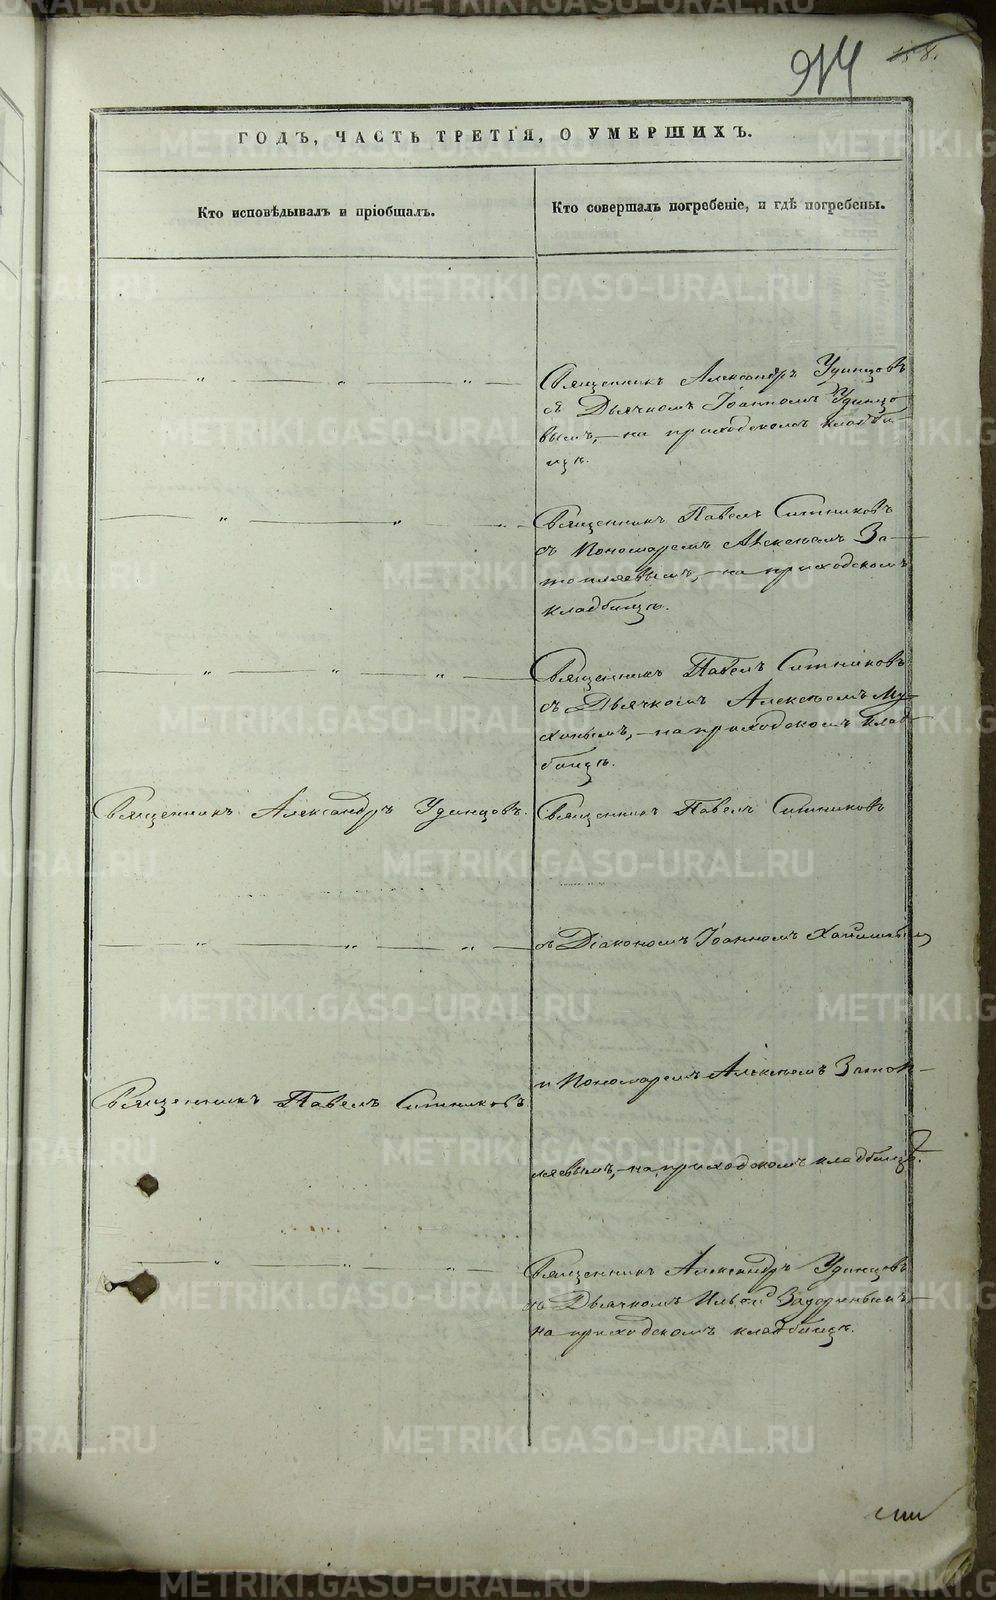 914
158.
ГОДЪ, ЧАСТЬ ТРЕТІЯ, О УМЕРШИХЪ.
Кто исповѣдывалъ и пріобщалъ.
Кто совершалъ погребеніе, и гдѣ погребены.
Священникъ Александръ Удинцовъ
съ Дьячкомъ Іоанномъ Удинцо-
вымъ, на приходскомъ кладби-
щѣ.
Священникъ Павелъ Ситниковъ
съ Пономаремъ Алексѣемъ За-
топляевымъ, на приходскомъ
кладбищѣ.
Священникъ Павелъ Ситниковъ
съ Дьячкомъ Алексѣемъ Му-
хинымъ, на приходскомъ клад-
бищѣ.
Священникъ Александръ Удинцовъ.
Священникъ Павелъ Ситниковъ
съ Діакономъ Іоанномъ
и Пономаремъ Алексѣемъ Затоп-
ляевымъ, на приходскомъ кладбищѣ.
Священникъ Павелъ Ситниковъ.
Священникъ Александръ Удинцовъ
съ Дьячкомъ Ильей
на приходскомъ кладбищѣ.
METRIKI.GASO-URAL.RU